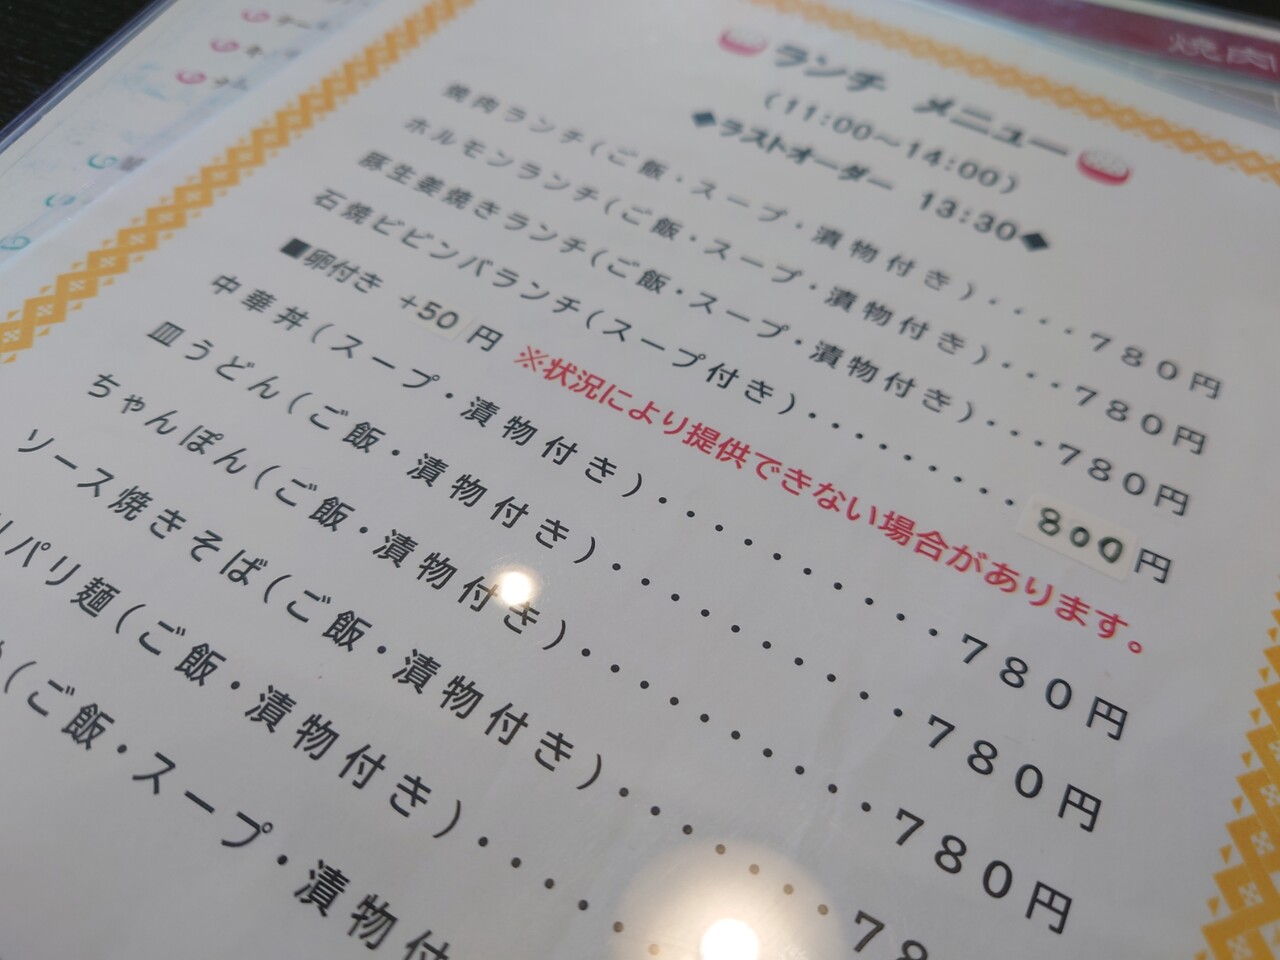 焼肉
ランチ メニュー
(11:00～14:00)
◆ラストオーダー 13:30◆
焼肉ランチ(ご飯・スープ・漬物付き)・・・・780円
ホルモンランチ(ご飯・スープ・漬物付き)・・・780円
豚生姜焼きランチ(ご飯・スープ・漬物付き)・・・780円
石焼ビビンバランチ(スープ付き)・・・・・・・・800円
■卵付き +50円 ※状況により提供できない場合があります。
中華丼(スープ・漬物付き)・・・・・・・・・・780円
皿うどん(ご飯・漬物付き)・・・・・・・・・・780円
ちゃんぽん(ご飯・漬物付き)・・・・・・・・・・780円
ソース焼きそば(ご飯・漬物付き)・・・・・・・78
パリ麺(ご飯・漬物付き)・・・・・・
(ご飯・スープ・漬物付